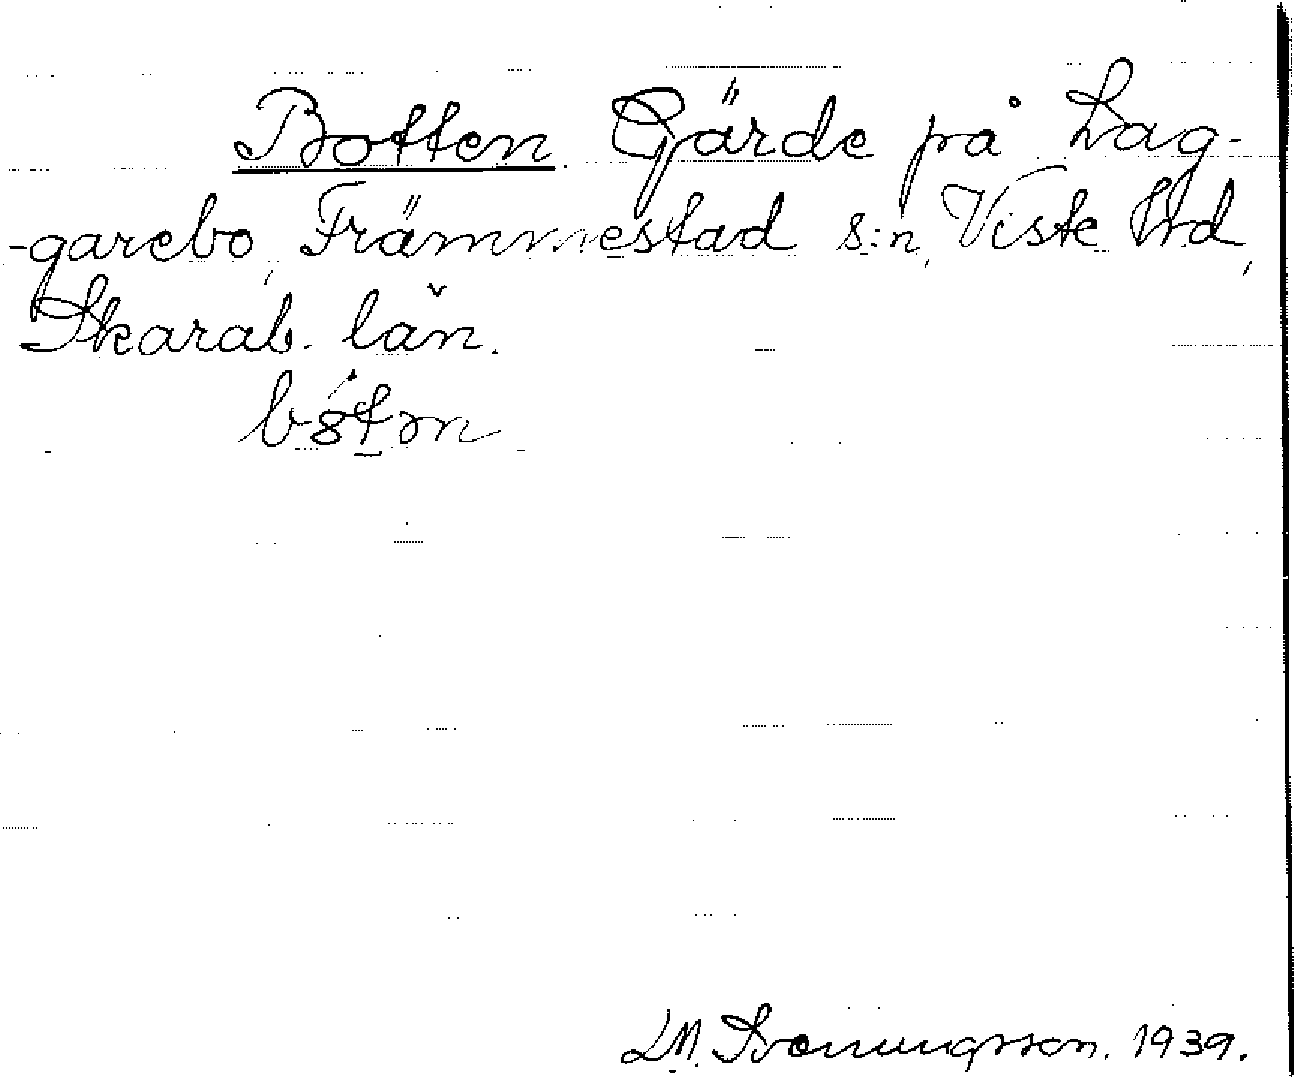 Botten. Gärde på Lag-
-garebo, Främmestad s:n, Viste Hrd,
Skarab. län.
L.M. Svenungsson. 1939.